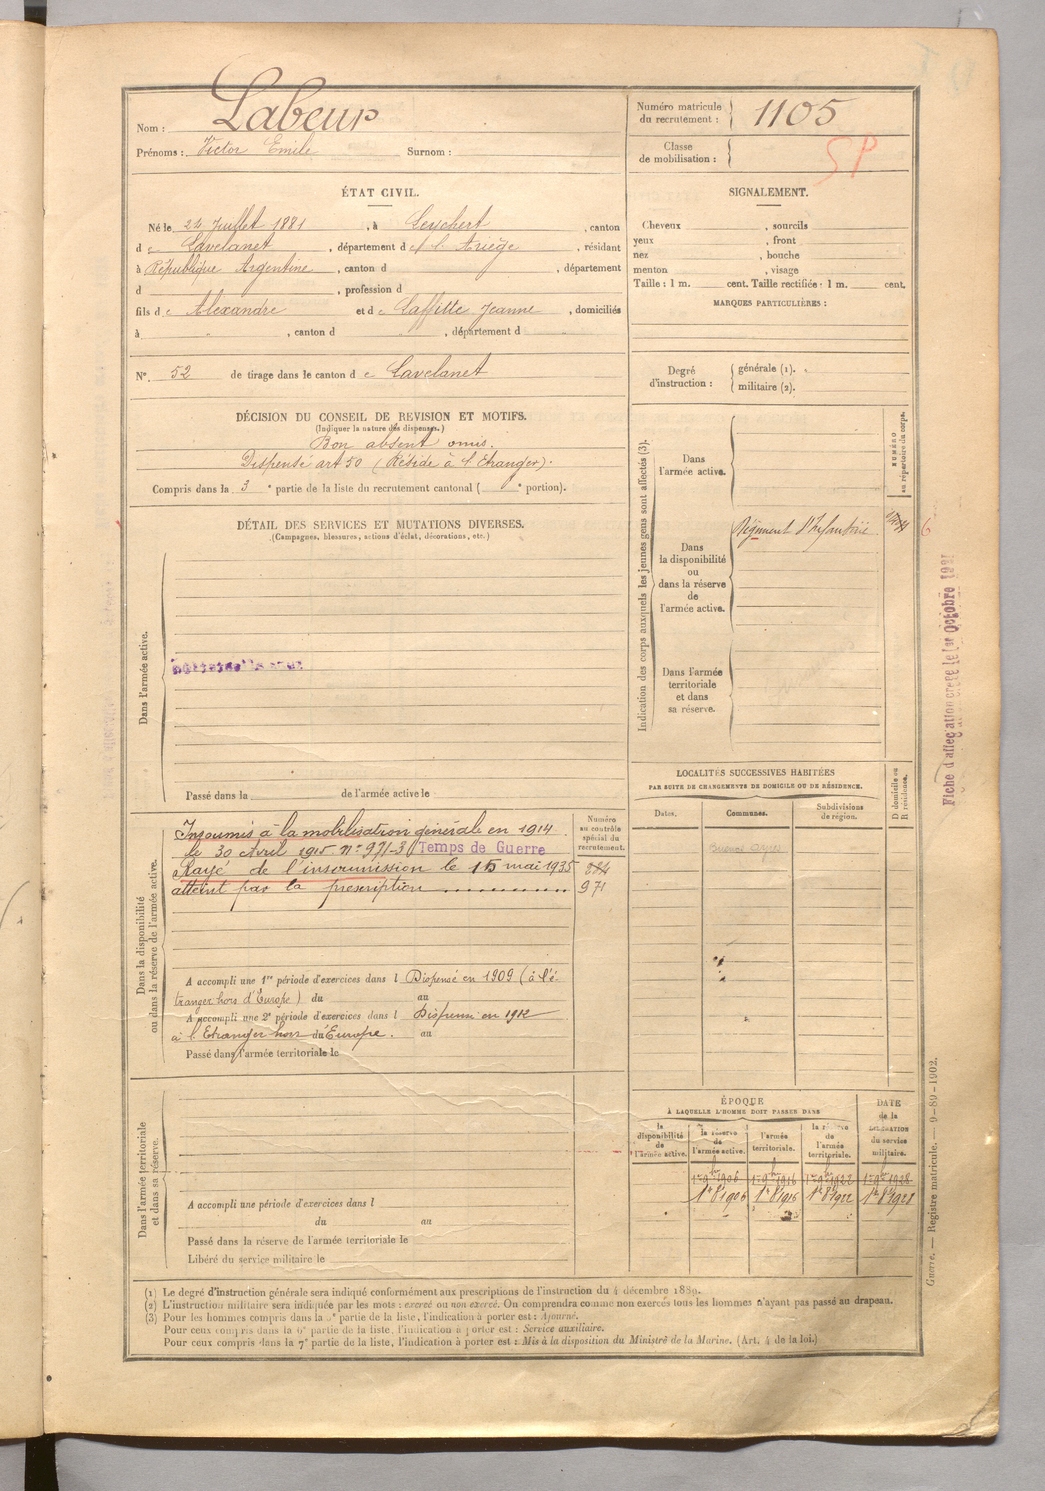 Nom : Labeur
Prénoms : Victor Emile Surnom :
Numéro matricule du recrutement : 1105
Classe de mobilisation :
SP
ÉTAT CIVIL.
Né le 24 Juillet 1881, à Leychert, canton
de Lavelanet, département de l'Ariège, résidant
à République Argentine, canton d , département
d , profession d
fils de Alexandre et de Laffitte Jeanne, domiciliés
à , canton d , département d
N° 52 de tirage dans le canton de Lavelanet
DÉCISION DU CONSEIL DE REVISION ET MOTIFS.
(Indiquer la nature des dispenses.)
Bon absent omis.
Dispensé art 50 (Réside à l'Etranger).
Compris dans la 3e partie de la liste du recrutement cantonal ( e portion).
DÉTAIL DES SERVICES ET MUTATIONS DIVERSES.
(Campagnes, blessures, actions d'éclat, décorations, etc.)
Dans l'armée active.
Passé dans la de l'armée active le
Dans la disponibilité
ou dans la réserve de l'armée active.
Numéro
au contrôle
spécial du
recrutement.
Insoumis à la mobilisation générale en 1914
le 30 Avril 1915 n° 971-3 Temps de Guerre
Rayé de l'insoumission le 15 mai 1935
atteint par la prescription
971
A accompli une 1re période d'exercices dans l Dispensé en 1909 (à l'é
tranger hors d'Europe) du au
A accompli une 2e période d'exercices dans l Dispensé en 1912
à l'Etranger hors du Europe. au
Passé dans l'armée territoriale le
Dans l'armée territoriale
et dans sa réserve.
A accompli une période d'exercices dans l
du au
Passé dans la réserve de l'armée territoriale le
Libéré du service militaire le
SIGNALEMENT.
Cheveux , sourcils
yeux , front
nez , bouche
menton , visage
Taille : 1 m. cent. Taille rectifiée : 1 m. cent.
MARQUES PARTICULIÈRES :
Degré d'instruction :
générale (1).
militaire (2).
Indication des corps auxquels les jeunes gens sont affectés (3).
NUMÉRO
au répertoire du corps.
Dans
l'armée active.
Régiment d'Infanterie
6
Dans
la disponibilité
ou
dans la réserve
de
l'armée active.
Dans l'armée
territoriale
et dans
sa réserve.
Fiche d'affectation créée le 1er Octobre
LOCALITÉS SUCCESSIVES HABITÉES
PAR SUITE DE CHANGEMENTS DE DOMICILE OU DE RÉSIDENCE.
D domicile ou
R résidence.
Dates.
Communes.
Subdivisions
de région.
Buenos Ayres
ÉPOQUE
À LAQUELLE L'HOMME DOIT PASSER DANS
DATE
de la
LIBÉRATION
du service
militaire.
la
disponibilité
de
l'armée active.
la réserve
de
l'armée active.
l'armée
territoriale.
la réserve
de
l'armée
territoriale.
1er 9bre 1906 1er 9bre 1916 1er 9bre 1922 1er 9bre 1928
1er 8bre 1906 1er 8bre 1916 1er 8bre 1922 1er 8bre 1928
(1) Le degré d'instruction générale sera indiqué conformément aux prescriptions de l'instruction du 4 décembre 1889.
(2) L'instruction militaire sera indiquée par les mots : exercé ou non exercé. On comprendra comme non exercés tous les hommes n'ayant pas passé au drapeau.
(3) Pour les hommes compris dans la 2e partie de la liste, l'indication à porter est : Ajourné.
Pour ceux compris dans la 6e partie de la liste, l'indication à porter est : Service auxiliaire.
Pour ceux compris dans la 7e partie de la liste, l'indication à porter est : Mis à la disposition du Ministre de la Marine. (Art. 4 de la loi.)
Guerre. — Registre matricule. — 9-89-1902.